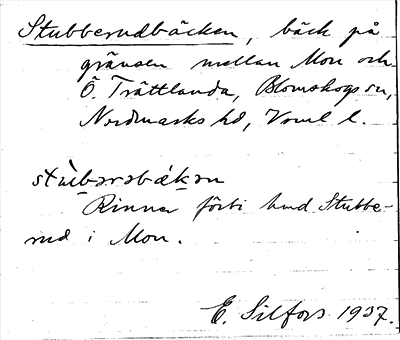 Stubberudbäcken, bäck på
gränsen mellan Mon och
Ö. Trättlanda, Blomskogs sn,
Nordmarks hd, Vrml l.
stùbərəbäkən
Rinner förbi hmd Stubbe-
rud i Mon.
E. Silfors 1937.